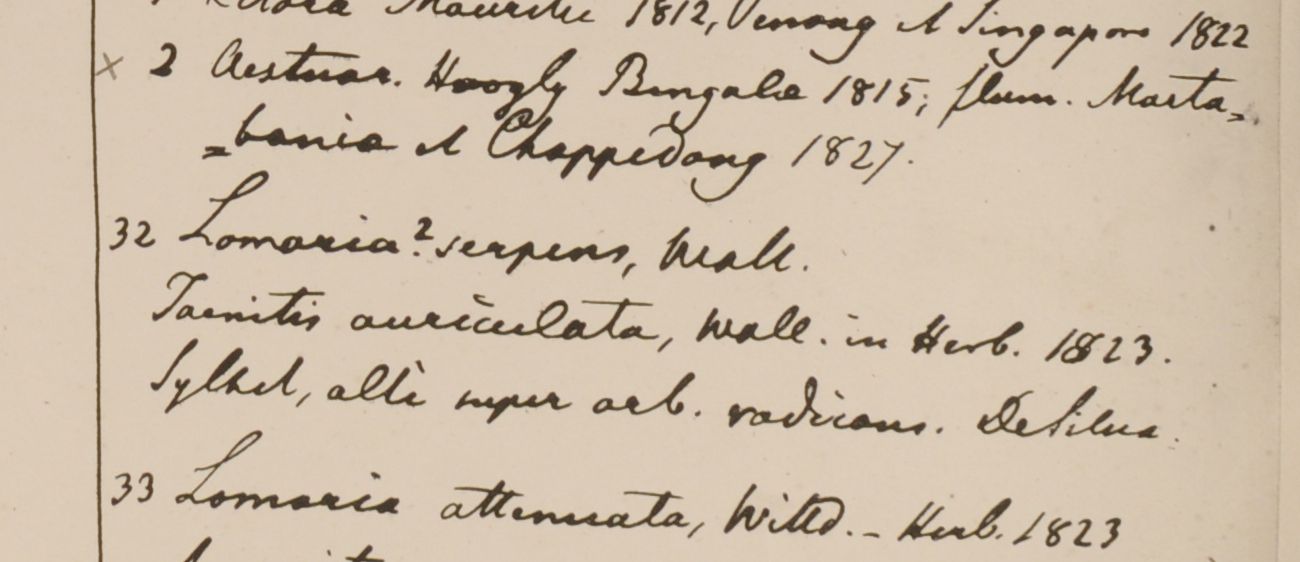 Littora Mauritii 1812, Penang et Singapore 1822
× 2 Aestuar. Hoogly Bengalae 1815; flum. Marta=
=bania et Chappedong 1827.
32 Lomaria? serpens, Wall.
Taenitis auriculata, Wall. in Herb. 1823.
Sylhet, altè super arb. radicans. DeSilva.
33 Lomaria attenuata, Willd. – Herb. 1823